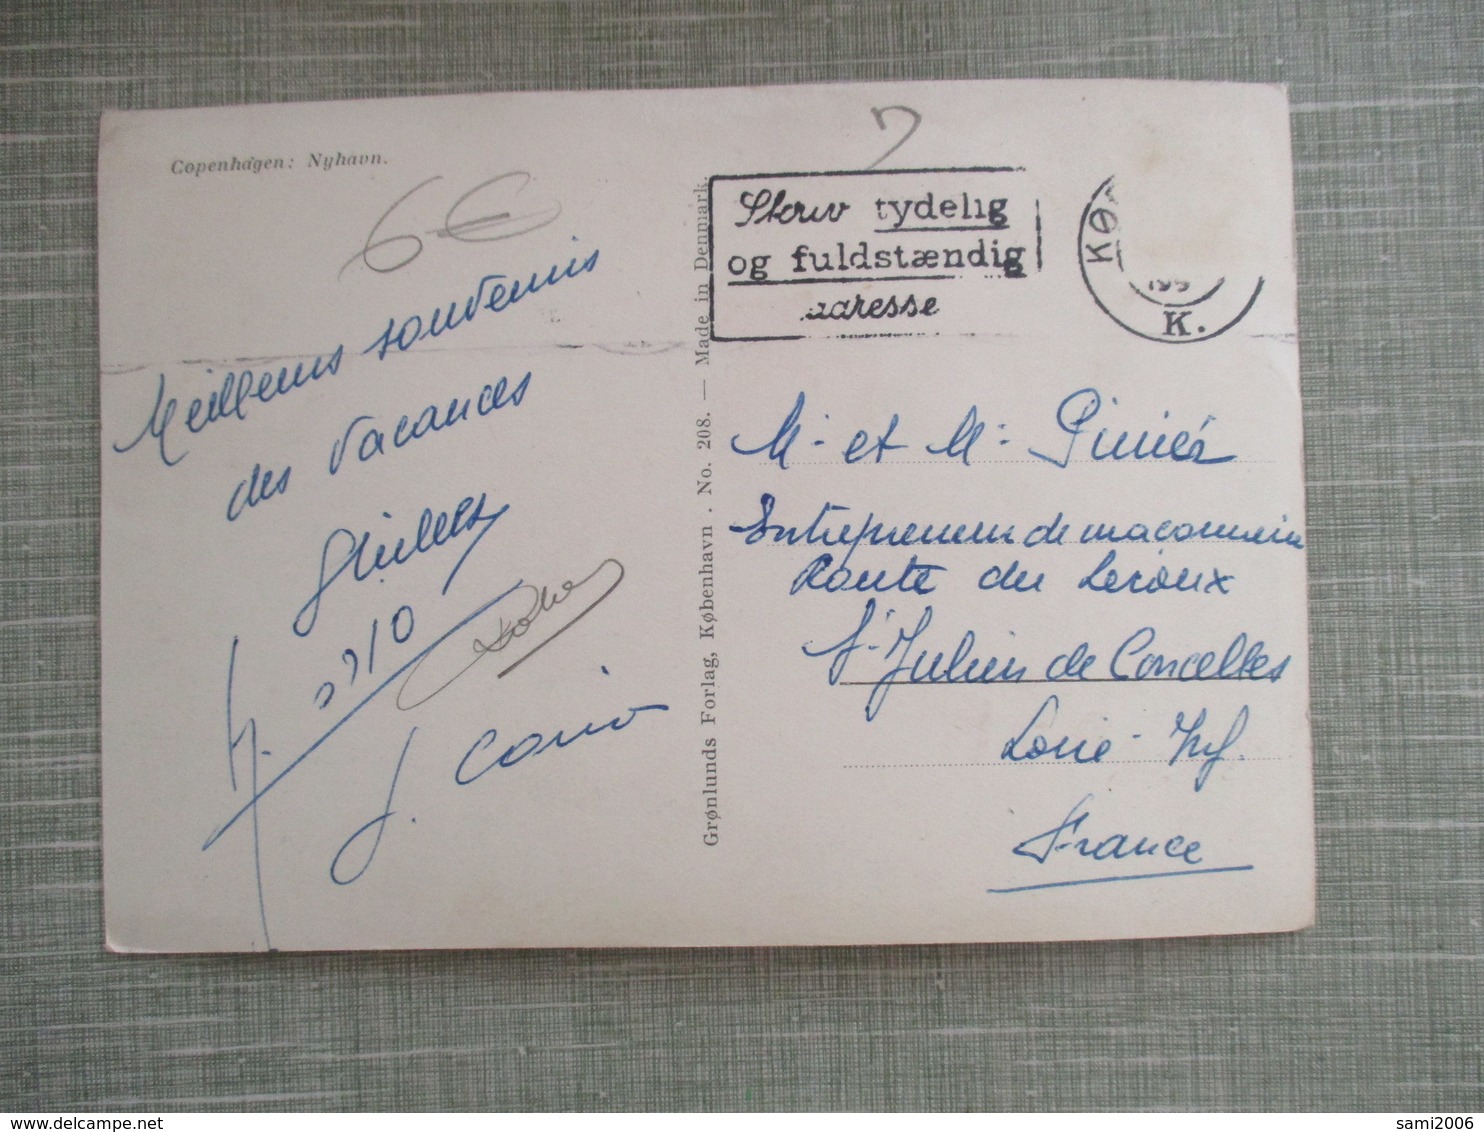 Copenhagen: Nyhavn.
6 €
Meilleurs souvenirs
des vacances
J. Cario
Grønlunds Forlag, København . No. 208. — Made in Denmark.
Skriv tydelig
og fuldstændig
adresse
KØ
195
K.
M. et M.
Entrepreneur de maconnerie
Route du Leroux
St Julien de Concelles
Loire Inf.
France
sami2006